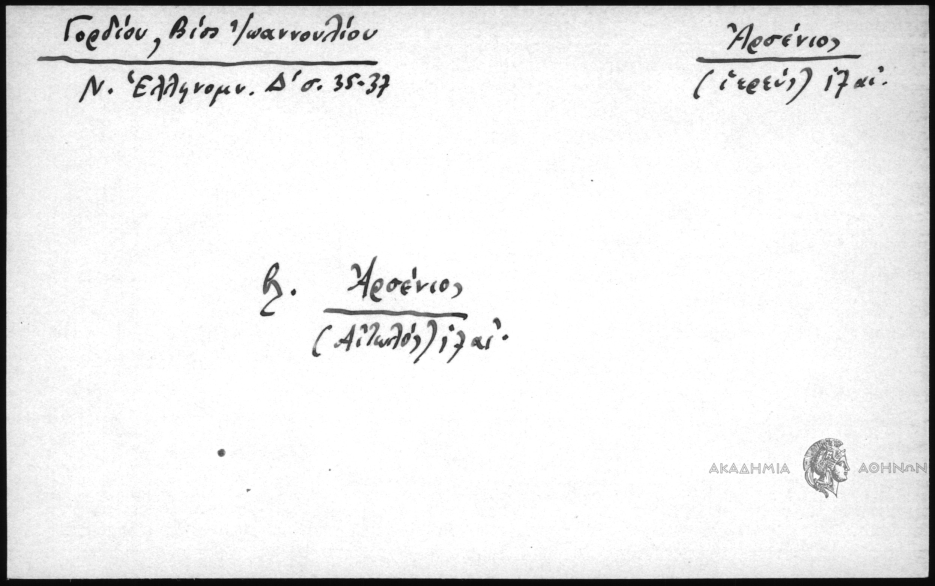 Γορδίου, Βίος Ἰωαννουλίου
Ν. Ἑλληνομν. Δ΄ σ. 35-37
Ἀρσένιος
(ἱερεύς) ιζ αἰ.
βλ. Ἀρσένιος
(Αἰτωλός) ιζ αἰ.
ΑΚΑΔΗΜΙΑ ΑΘΗΝΩΝ